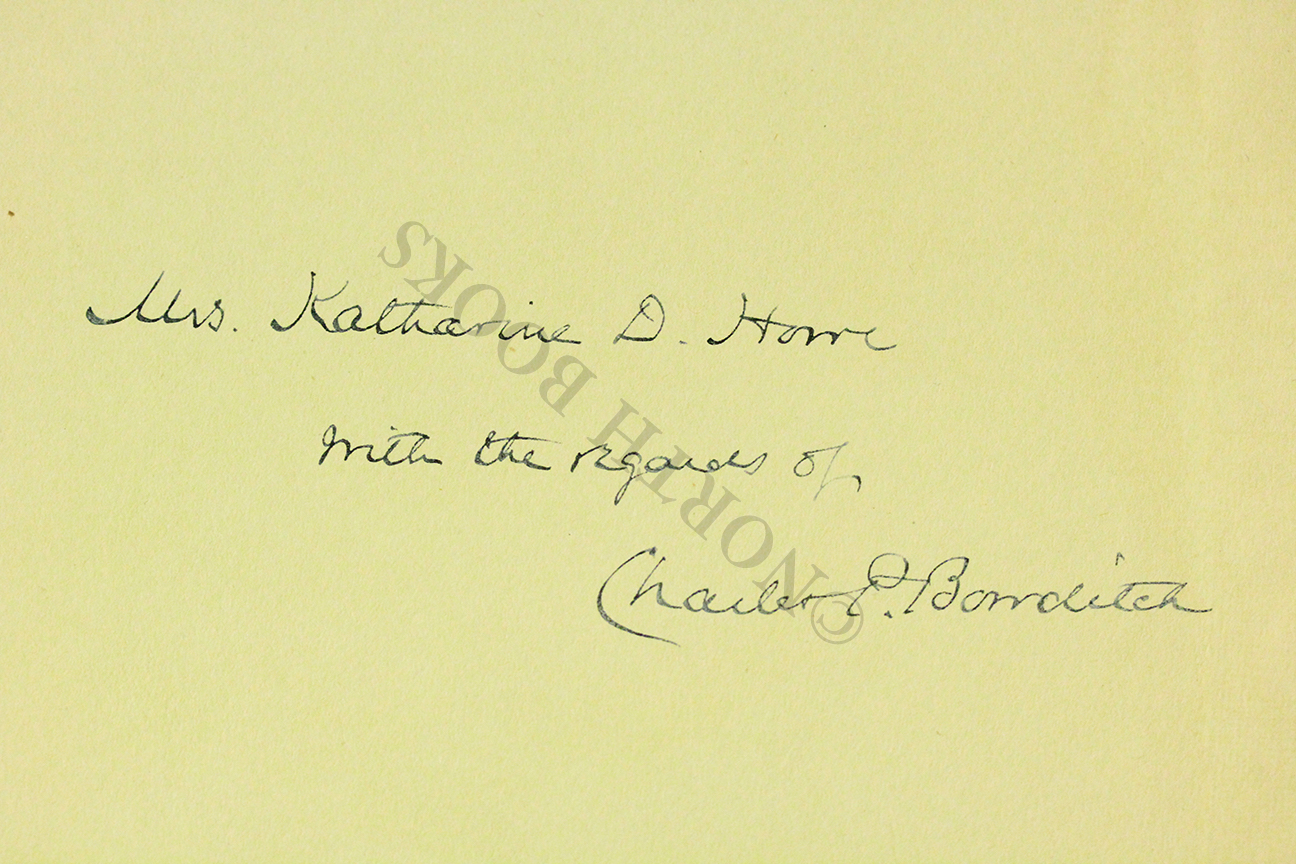 Mrs. Katharine D. Howe
with the regards of
Charles P. Bowditch
© NORTH BOOKS